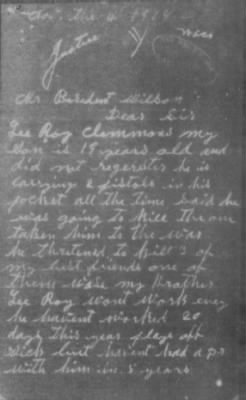 the 4 1918
Justice
Mr President Wilson
Dear Sir
Lee Roy Clemmons my
Son is 19 years old and
did not regerster he is
carrying 2 pistols in his
pocket all the time said he
was going to kill
taken him to the war
he thretened to kill 3 of
my best friends one of
them was my Brother
Lee Roy wont work
he havent worked 20
days this year plays off
Sick but havent had a Dr
with him in 5 years